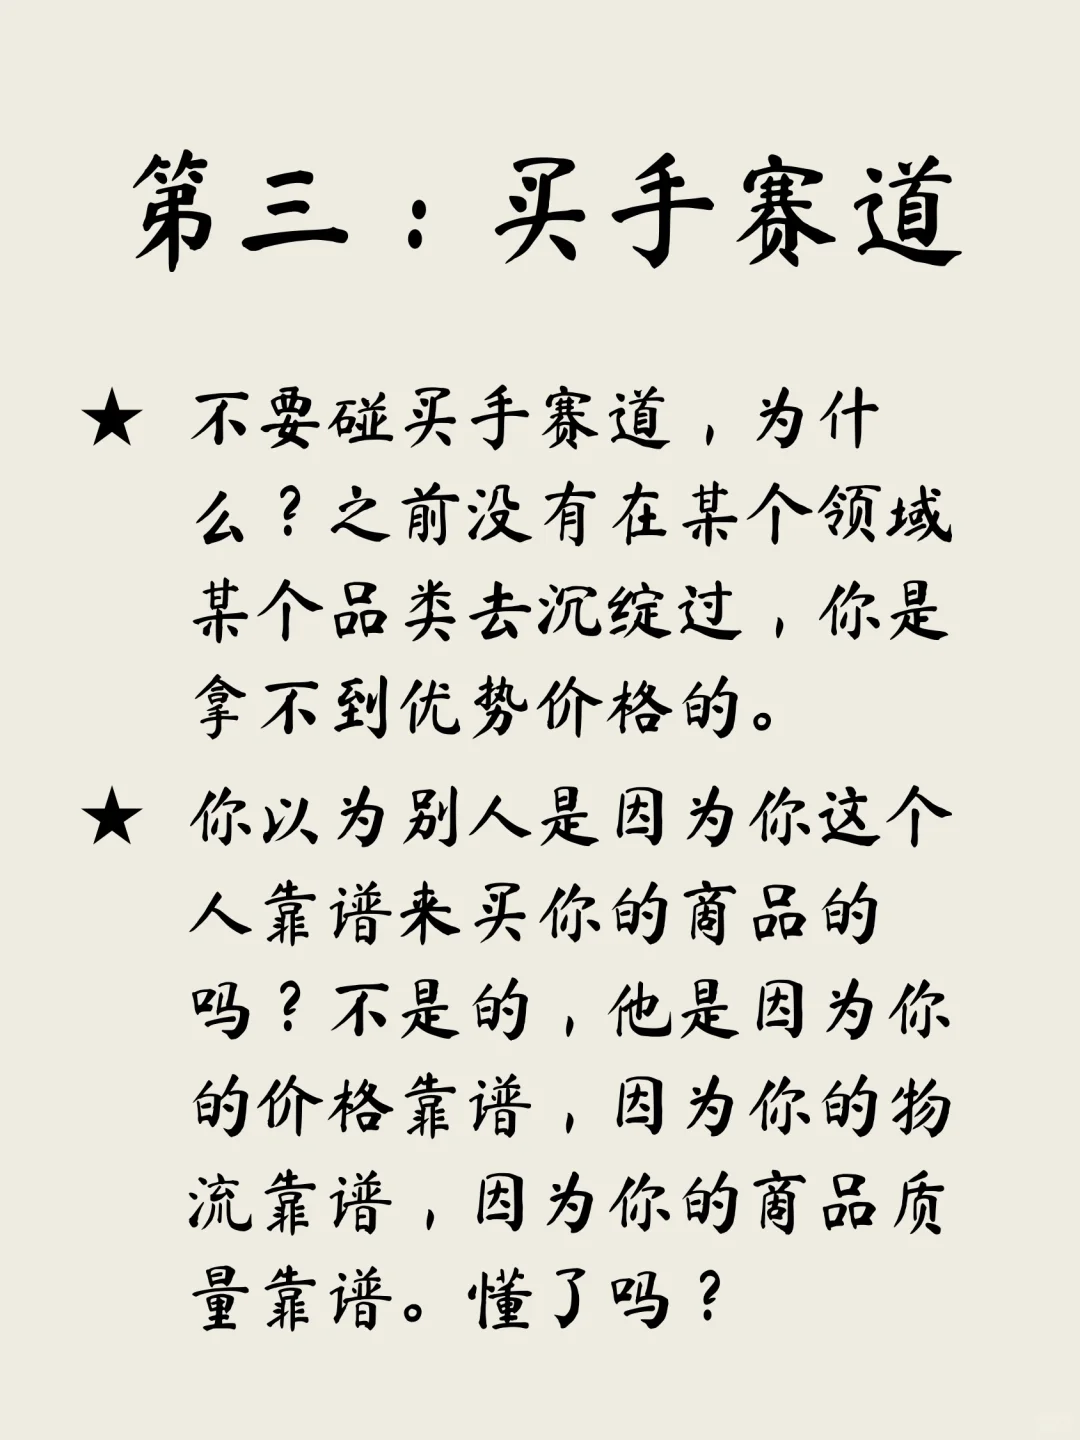 第三：买手赛道
★ 不要碰买手赛道，为什
么？之前没有在某个领域
某个品类去沉绽过，你是
拿不到优势价格的。
★ 你以为别人是因为你这个
人靠谱来买你的商品的
吗？不是的，他是因为你
的价格靠谱，因为你的物
流靠谱，因为你的商品质
量靠谱。懂了吗？